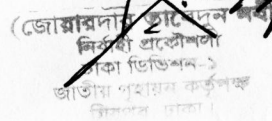 (জোয়ারদার তাবেদুন নবী)
নির্বাহী প্রকৌশলী
ঢাকা ডিভিশন-১
জাতীয় গৃহায়ন কর্তৃপক্ষ
ঢাকা।